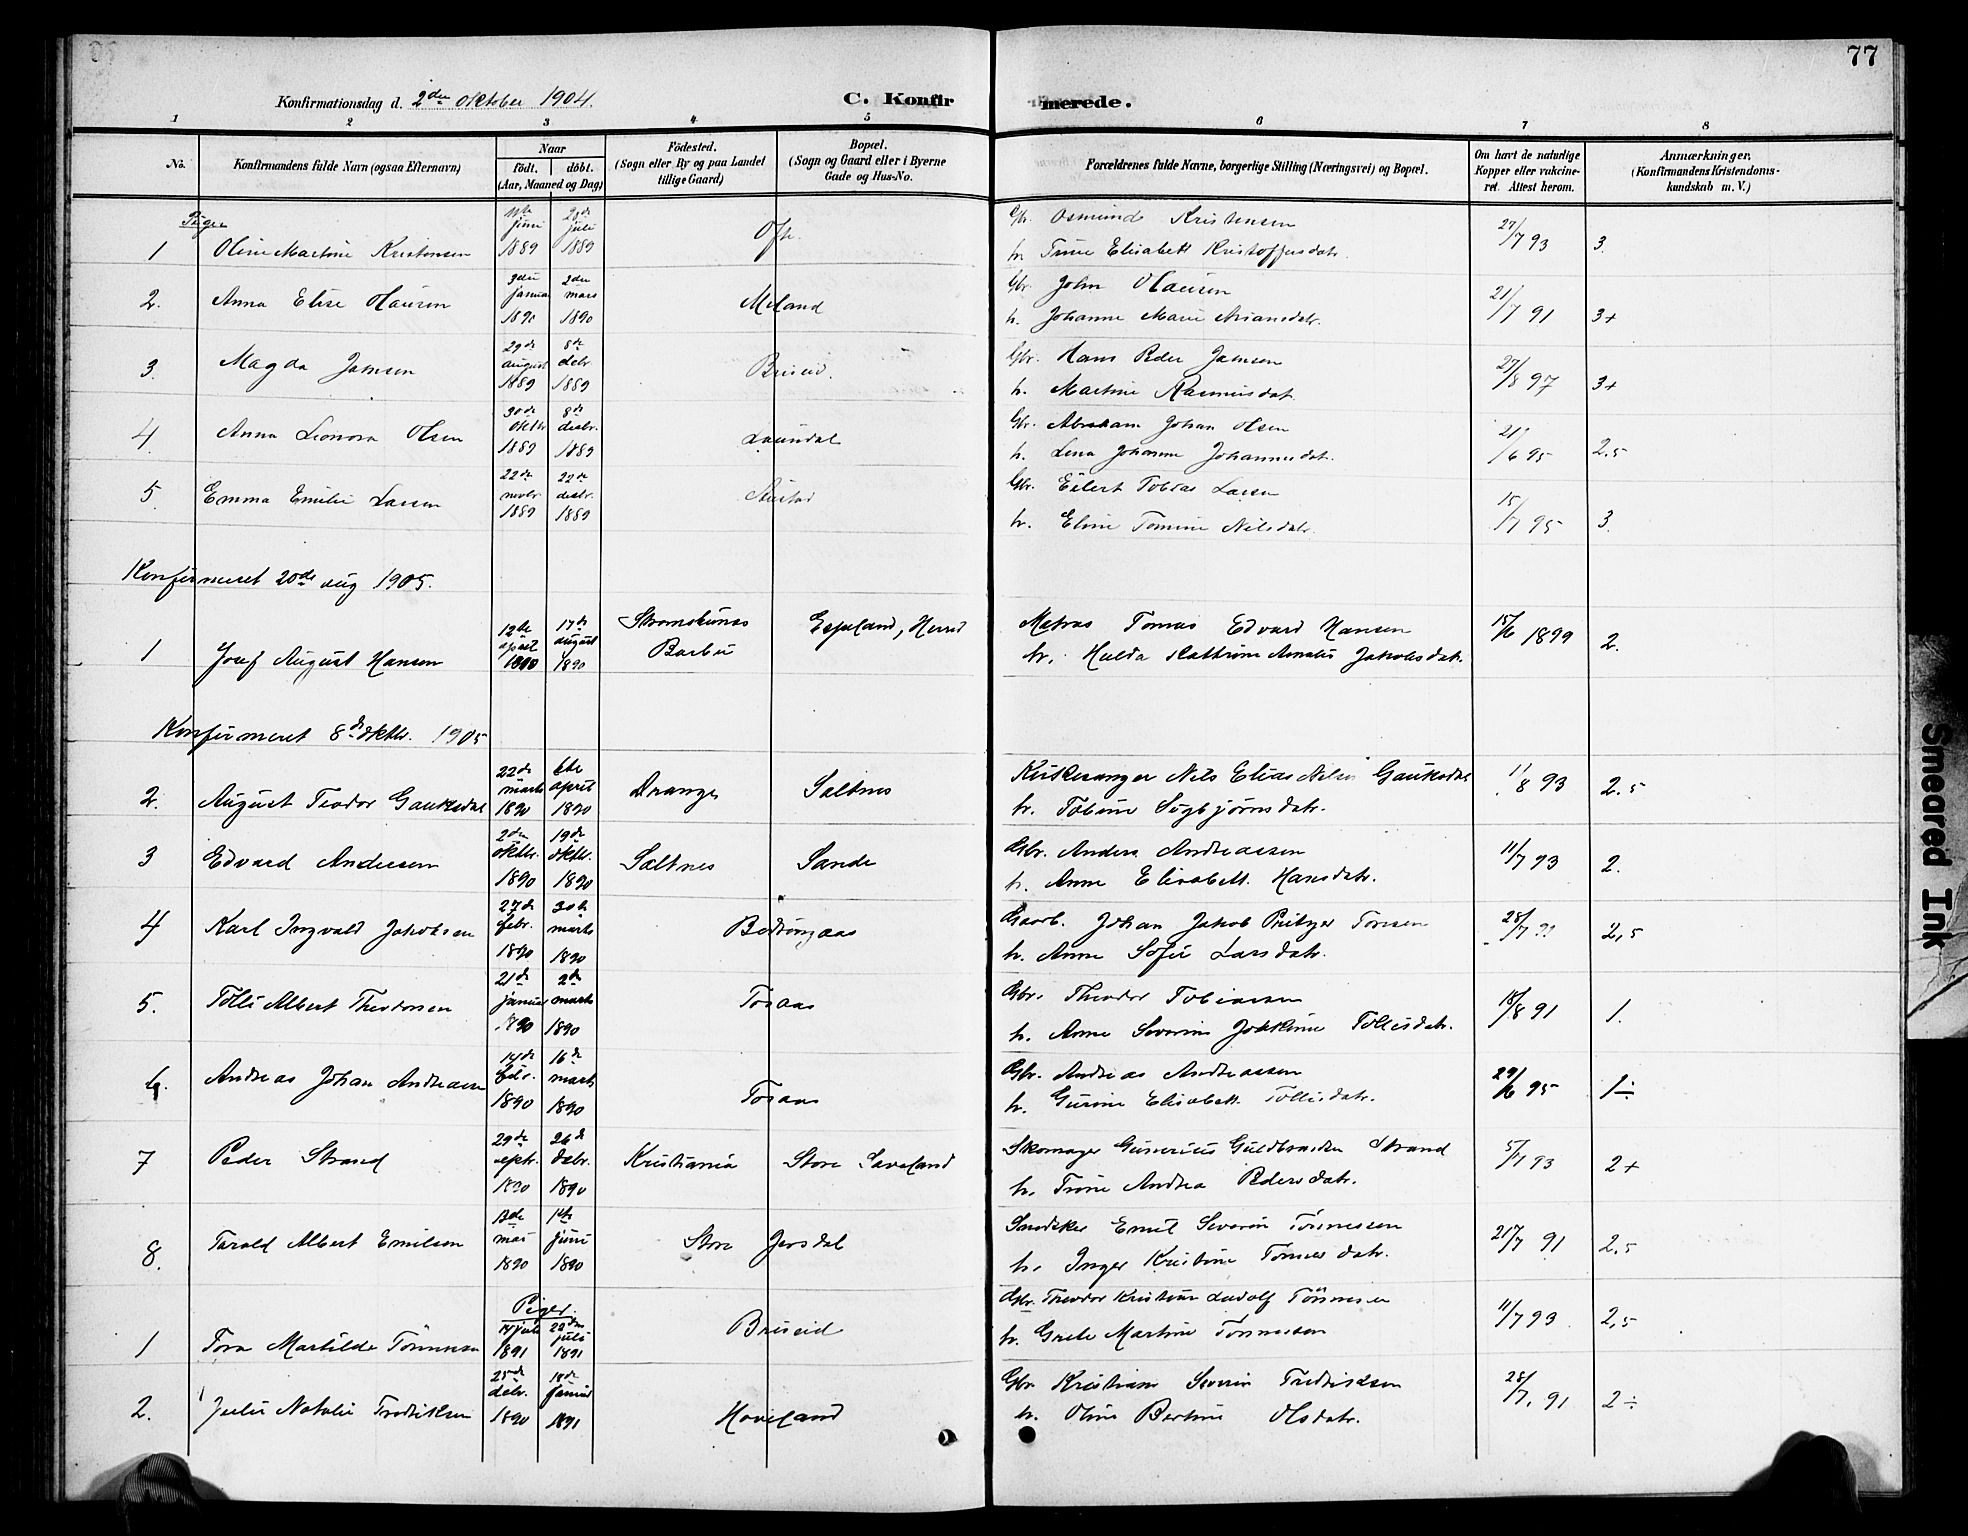 77
Konfirmationsdag d. 2den oktober 1904.
C. Konfirmerede.
1 2 3 4 5 6 7 8
No. Konfirmandens fulde Navn (ogsaa Efternavn)
Naar
födt. döbt.
(Aar, Maaned og Dag)
Födested.
(Sogn eller By og paa Landet
tillige Gaard)
Bopæl.
(Sogn og Gaard eller i Byerne
Gade og Hus-No.
Forældrenes fulde Navne, borgerlige Stilling (Næringsvei) og Bopæl.
Om havt de naturlige
Kopper eller vakcine-
ret. Attest herom.
Anmærkninger.
(Konfirmandens Kristendoms-
kundskab m. V.)
Piger
1 Oline Martine Kristensen juni 1889 juli 1889 Ofte Gbr. Osmund Kristensen 27/7 93 3.
h. Trine Elisabett Kristoffersdatr.
2. Anna Elise Olausen januar 1890 2den mars 1890 Meland Gbr. John Olausen 21/7 91 3+
h. Johanne Marie
3. Magda Jamsen 29de august 1889 8de debr. 1889 Briseid. Gbr. Hans Peder Jamsen 27/8 97 3+
h. Martine Rasmusdat.
4. Anna Leonora Olsen 30de oktbr 1889 8de desbr. 1889 Laundal Gbr. Abraham Johan Olsen 21/6 95 2.5
h. Lena Johanne Johannesdatr.
5. Emma Emilie Larsen 22de novbr. 1889 22de desbr. 1889 Gbr. Eilert Tobias Larsen 15/7 95 3.
h. Eline Tomine Nilsdatr.
Konfirmeret 20de aug 1905.
1 Josef August Hansen 12te april 1890 17de august 1890 Barbu Espeland, Herred Matros Tomas Edvard Hansen 15/6 1899 2.
h. Hulda Kathrine Amalie Jakobsdatr.
Konfirmeret 8de oktbr. 1905
2. August Teodor Gauksdal 22de marts 1890 6te april 1890 Drange Saltnes Kirkesanger Nils Elias Nilsen Gauksdal 11/8 93 2.5
h. Tobine Sigbjørnsdatr.
3 Edvard Andersen 2den oktbr. 1890 19de oktbr. 1890 Saltnes Sande Gbr. Anders Andreassen 11/7 93 2.
h. Anne Elisabett Hansdatr.
4 Karl Ingvald Jakobsen 27de febr. 1890 30te marts 1890 Gaarb. Johan Jakob 28/7 91 2,5
h. Anne Sofie Larsdatr.
5. Tolli Albert Theodorsen 21de januar 1890 2den marts 1890 Tosaas Gbr. Theodor Tobiassen 18/8 91 1.
h. Anne Severine Jokkime Tollisdatr.
6. Andreas Johan Andreasen 14de febr. 1890 16de marts 1890 Tosaas Gbr. Andreas Andreassen 29/6 95 1÷
h. Gurine Elisabett Tollisdatr.
7 Peder Strand 29de septr. 1890 26de debr. 1890 Kristiania Store Saveland Skomager Gunerius Guldbrandsen Strand 5/7 93 2+
h. Trine Andrea Pedersdatr.
8. Tarald Albert Emilsen 13de mai 1890 1ste juni 1890 Store Jersdal Snedker Emil Severin Tönnessen 21/7 91 2,5
h. Inger Kristine Tönnesdatr.
Piger.
1 Tora Martilde Tönnesen 14 juli 1891 juli 1891 Briseid Gbr. Theodor Kristian Ludolf Tönnesen 11/7 93. 2,5
h. Grete Martine Tönnessen
2. Julie Natalie Fredriksen 25de debr. 1890 18de januar 1891 Haveland Gbr Kristian Severin Fredriksen 28/7 91 2÷
h. Oline Bertine Olsdatr.
Smeared Ink